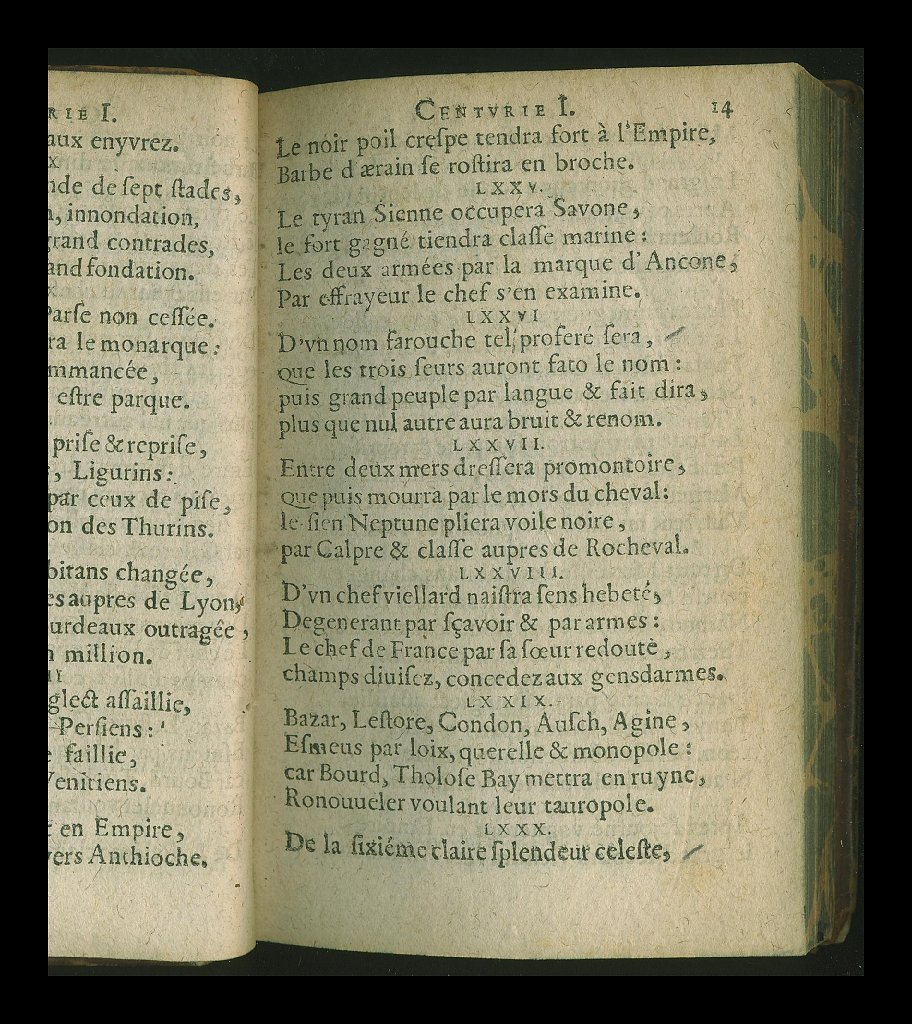 RIE I.
aux enyvrez.
x
nde de sept stades,
n, innondation,
grand contrades,
and fondation.
Parse non cessée.
ra le monarque:
mmancée,
estre parque.
prise & reprise,
, Ligurins:
par ceux de pise,
on des Thurins.
bitans changée,
es aupres de Lyon,
urdeaux outragée,
n million.
II
glect assaillie,
Persiens:
e faillie,
Venitiens.
t en Empire,
vers Anthioche.
CENTVRIE I. 14
Le noir poil crespe tendra fort à l'Empire,
Barbe d ærain se rostira en broche.
LXXV.
Le tyran Sienne occupera Savone,
le fort gagné tiendra classe marine:
Les deux armées par la marque d'Ancone,
Par effrayeur le chef s'en examine.
LXXVI
D'vn nom farouche tel, proferé sera,
que les trois seurs auront fato le nom:
puis grand peuple par langue & fait dira,
plus que nul autre aura bruit & renom.
LXXVII.
Entre deux mers dressera promontoire,
que puis mourra par le mors du cheval:
le sien Neptune pliera voile noire,
par Calpre & classe aupres de Rocheval.
LXXVIII.
D'vn chef viellard naistra sens hebeté,
Degenerant par sçavoir & par armes:
Le chef de France par sa sœur redouté,
champs diuisez, concedez aux gensdarmes.
LXXIX.
Bazar, Lestore, Condon, Ausch, Agine,
Esmeus par loix, querelle & monopole:
car Bourd, Tholose Bay mettra en ruyne,
Ronouueler voulant leur tauropole.
LXXX.
De la sixiéme claire splendeur celeste,